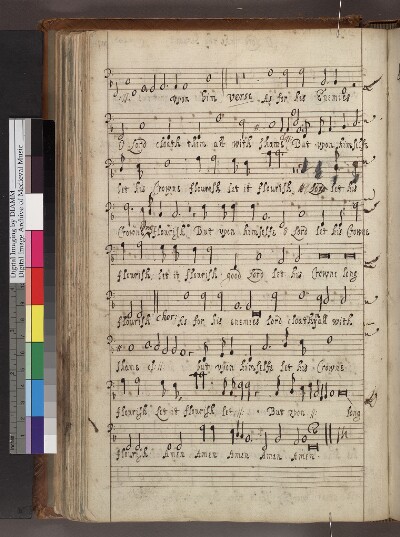 :||: upon him verse As for his Enemies
O Lord cloath them all with shame But upon himselfe
let his Crowne flourish let it flourish Lord let his
Crowne flourish But upon himselfe O Lord let his Crowne
flourish let it flourish good Lord let his Crowne long
flourish chor: As for his enemies Lord cloath all with
shame but upon himselfe let his Crowne
flourish let it flourish let :||: But upon :||: long
flourish Amen Amen Amen Amen Amen
Digital Imaging by DIAMM
Digital Image Archive of Medieval Music